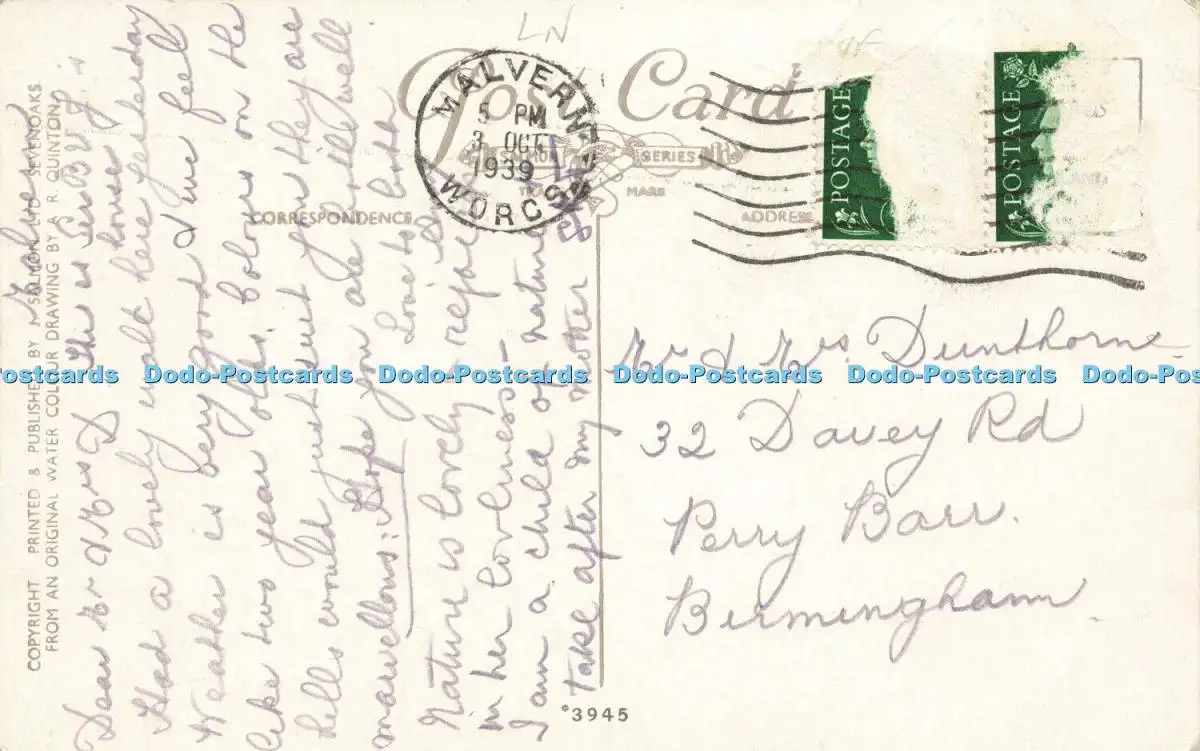 LN
Post Card
SALMON SERIES
TRADE MARK
CORRESPONDENCE
ADDRESS
MALVERN
5 PM
3 OCT
1939
WORCS
POSTAGE
POSTAGE
COPYRIGHT PRINTED & PUBLISHED BY J. SALMON LTD SEVENOAKS
FROM AN ORIGINAL WATER COLOUR DRAWING BY A. R. QUINTON
Dear Mr & Mrs D This is
house
Had a lovely walk here yesterday
Weather is very good & we feel
like two year olds. Colours on the
hills could just suit you they are
marvellous: Hope you are both well
Love to both
Nature is lovely
in her lovliness -
I am a child of nature
take after my mother
Mr & Mrs Dunthorne
32 Davey Rd
Perry Barr.
Birmingham.
*3945
Dodo-Postcards Dodo-Postcards Dodo-Postcards Dodo-Postcards Dodo-Postcards